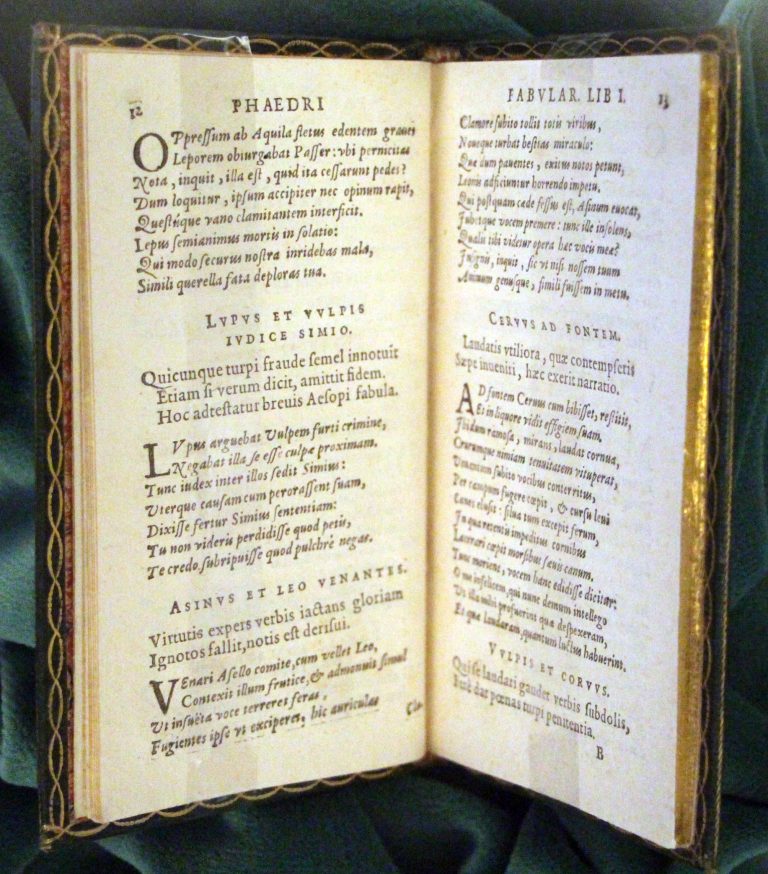 12 PHAEDRI
OPpressum ab Aquila fletus edentem graueis
Leporem obiurgabat Passer: vbi pernicitas
Nota, inquit, illa est, quid ita cessarunt pedes?
Dum loquitur, ipsum accipiter nec opinum rapit,
Questúque vano clamitantem interficit.
Lepus semianimus mortis in solatio:
Qui modo securus nostra inridebas mala,
Simili querella fata deploras tua.
LVPVS ET VVLPIS
IVDICE SIMIO.
Quicunque turpi fraude semel innotuit
Etiam si verum dicit, amittit fidem.
Hoc adtestatur breuis Aesopi fabula.
LVpus arguebat Vulpem furti crimine,
Negabat illa se esse culpæ proximam.
Tunc iudex inter illos sedit Simius:
Vterque causam cum perorassent suam,
Dixisse fertur Simius sententiam:
Tu non videris perdidisse quod petis,
Te credo subripuisse quod pulchrè negas.
ASINVS ET LEO VENANTES.
Virtutis expers verbis iactans gloriam
Ignotos fallit, notis est derisui.
VEnari Asello comite, cum vellet Leo,
Contexit illum frutice, & admonuit simul
Vt insuëta voce terreret feras,
Fugientes ipse vt exciperet, hic auriculas
Cla-
FABVLAR. LIB I. 13
Clamore subito tollit totis viribus,
Nouoque turbat bestias miraculo:
Quæ dum pauentes, exitus notos petunt,
Leonis adficiuntur horrendo impetu.
Qui postquam cæde fessus est, Asinum euocat,
Jubetque vocem premere: tunc ille insolens,
Qualis tibi videtur opera hæc vocis meæ?
Insignis, inquit, sic vt nisi nossem tuum
Animum genusque, simili fuissem in metu.
CERVVS AD FONTEM.
Laudatis vtiliora, quæ contempseris
Sæpe inueniri, hæc exerit narratio.
AD fontem Ceruus cum bibisset, restitit,
Et in liquore vidit effigiem suam.
Ibidum ramosa, mirans, laudat cornua,
Crurumque nimiam tenuitatem vituperat,
Venantium subito vocibus conterritus,
Per campum fugere cœpit, & cursu leui
Canes elusit: silua tum excepit ferum,
In qua retentis impeditus cornibus
Lacerari cœpit morsibus sæuis canum.
Tunc moriens, vocem hanc edidisse dicitur:
O me infelicem, qui nunc demum intellego
Vt illa mihi profuerint quæ despexeram,
Et quæ laudaram, quantum luctus habuerint.
VVLPIS ET CORVVS.
Qui se laudari gaudet verbis subdolis,
Serè dat pœnas turpi penitentia.
B